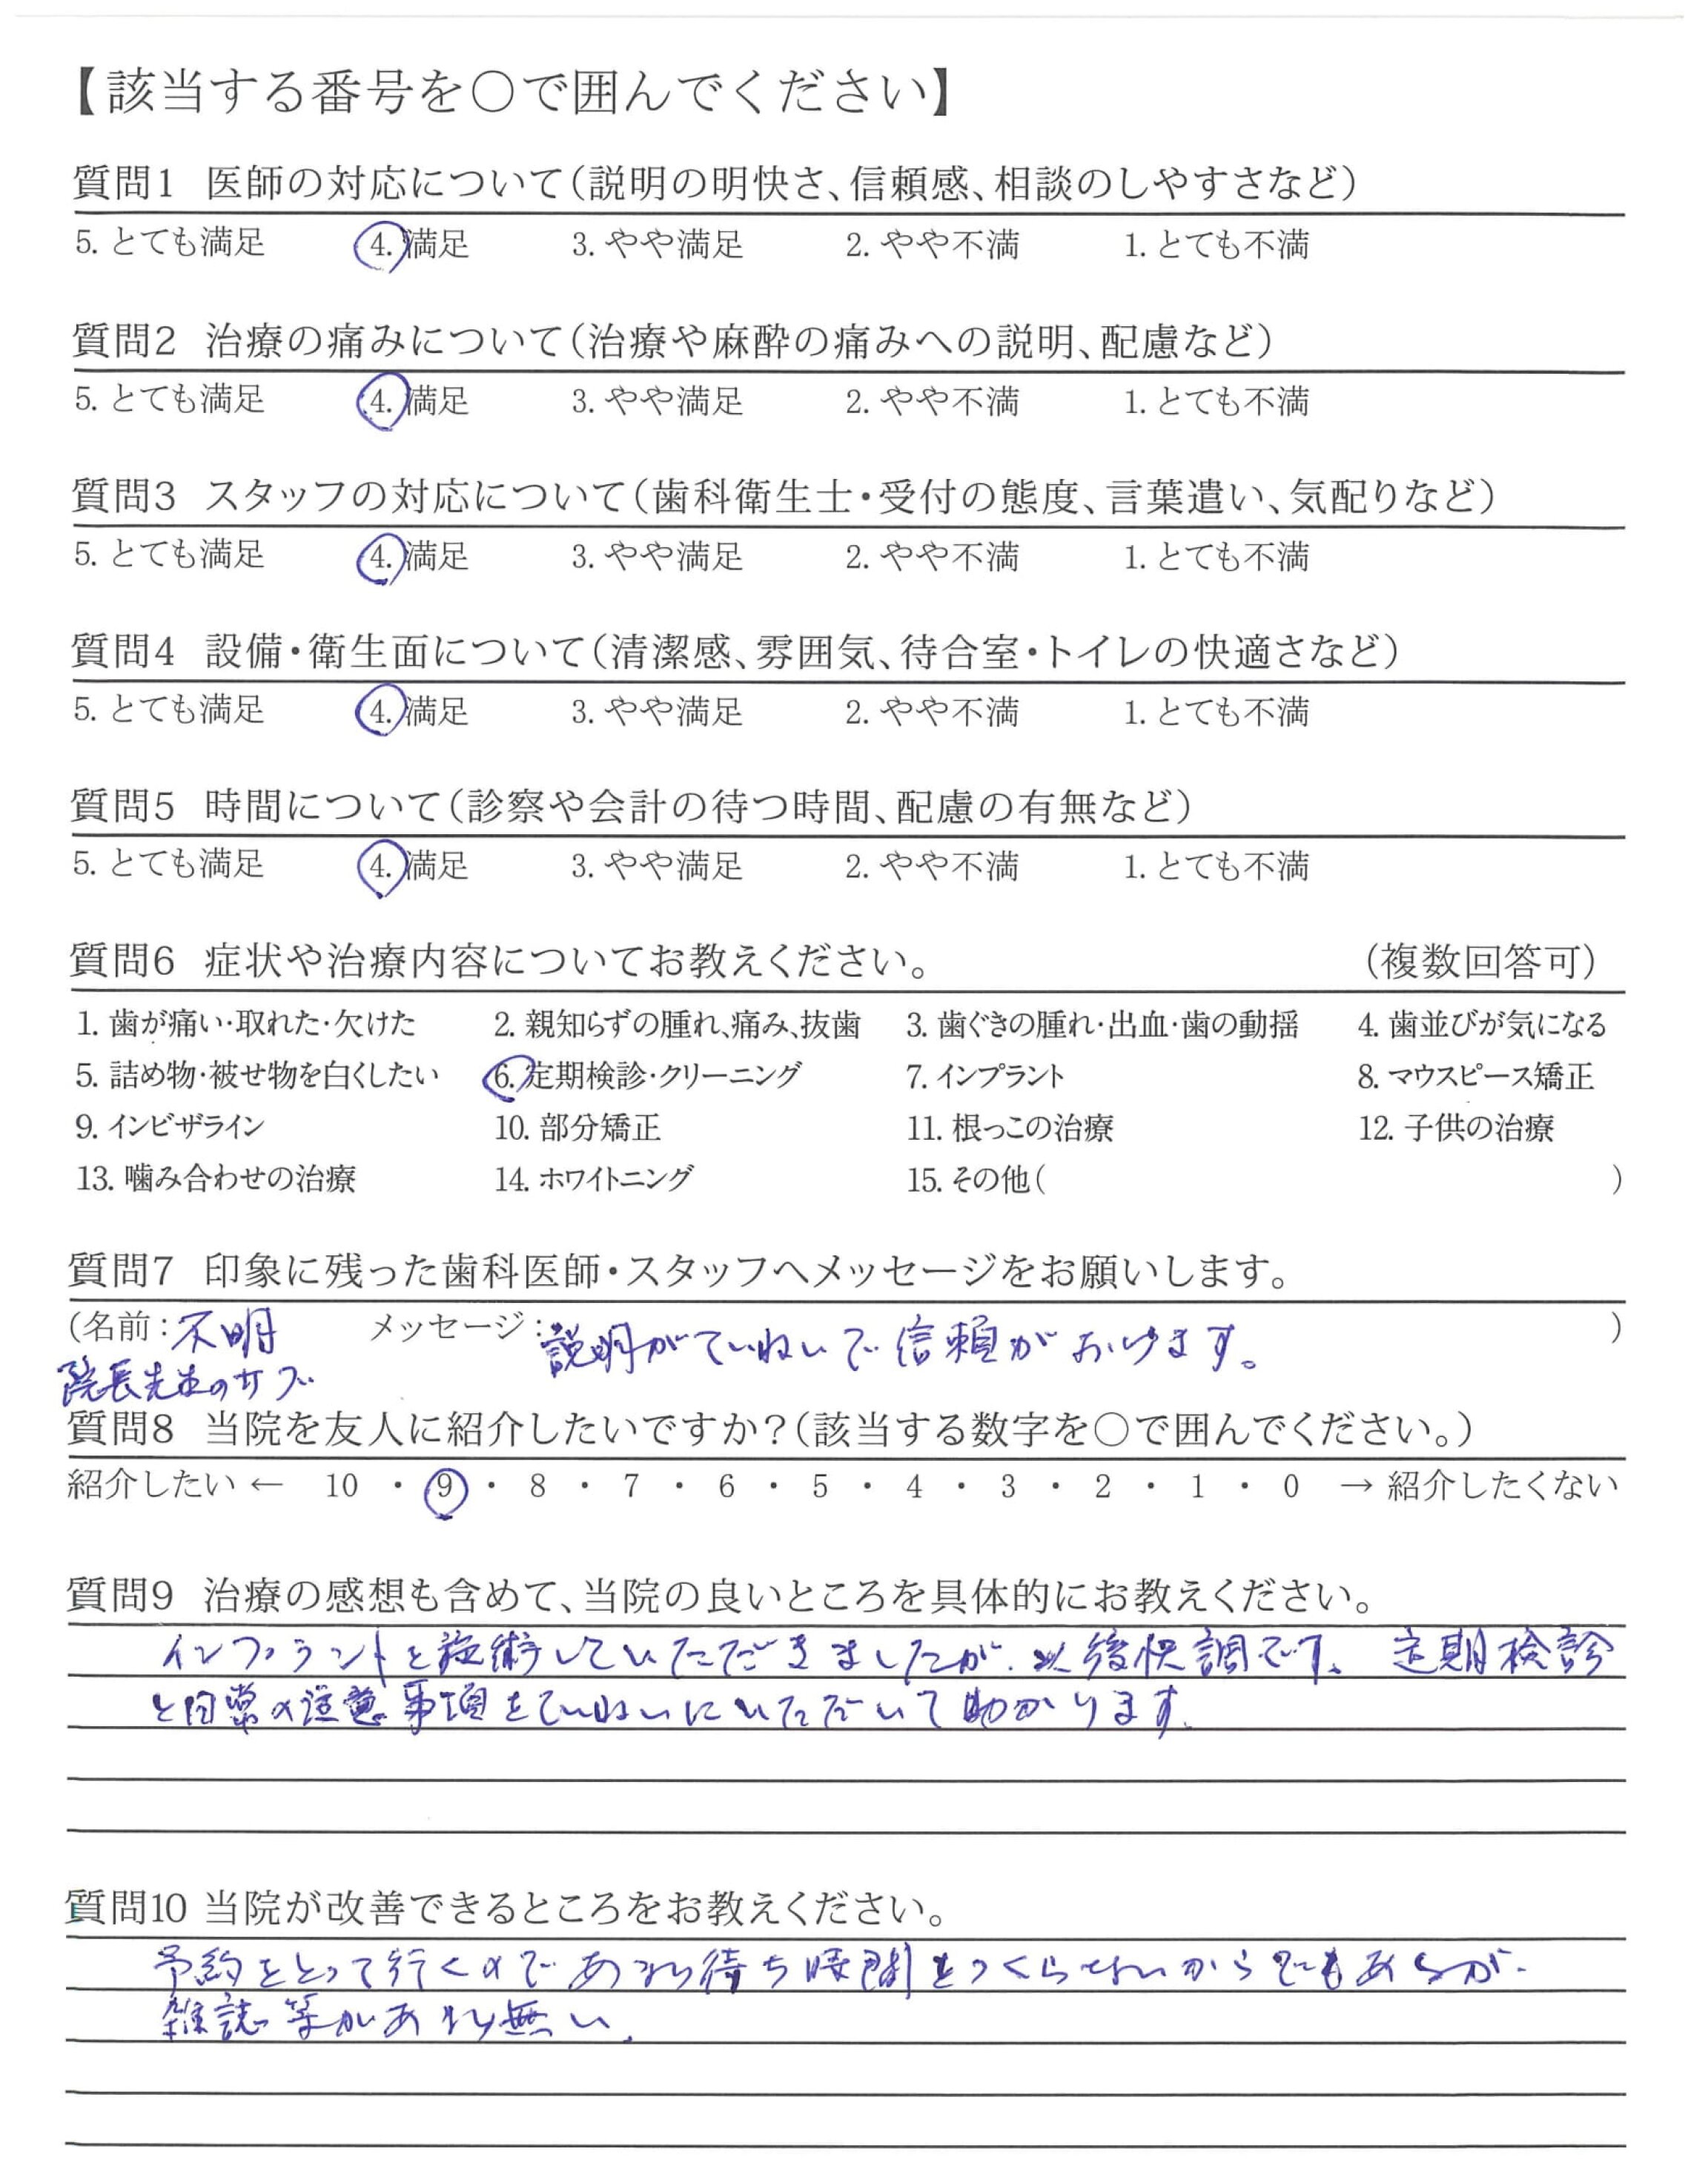 【該当する番号を○で囲んでください】
質問1 医師の対応について（説明の明快さ、信頼感、相談のしやすさなど）
5. とても満足 4. 満足 3. やや満足 2. やや不満 1. とても不満
質問2 治療の痛みについて（治療や麻酔の痛みへの説明、配慮など）
5. とても満足 4. 満足 3. やや満足 2. やや不満 1. とても不満
質問3 スタッフの対応について（歯科衛生士・受付の態度、言葉遣い、気配りなど）
5. とても満足 4. 満足 3. やや満足 2. やや不満 1. とても不満
質問4 設備・衛生面について（清潔感、雰囲気、待合室・トイレの快適さなど）
5. とても満足 4. 満足 3. やや満足 2. やや不満 1. とても不満
質問5 時間について（診察や会計の待つ時間、配慮の有無など）
5. とても満足 4. 満足 3. やや満足 2. やや不満 1. とても不満
質問6 症状や治療内容についてお教えください。 （複数回答可）
1. 歯が痛い・取れた・欠けた 2. 親知らずの腫れ、痛み、抜歯 3. 歯ぐきの腫れ・出血・歯の動揺 4. 歯並びが気になる
5. 詰め物・被せ物を白くしたい 6. 定期検診・クリーニング 7. インプラント 8. マウスピース矯正
9. インビザライン 10. 部分矯正 11. 根っこの治療 12. 子供の治療
13. 噛み合わせの治療 14. ホワイトニング 15. その他（ ）
質問7 印象に残った歯科医師・スタッフへメッセージをお願いします。
（名前：不明 メッセージ：説明がていねいで信頼がおけます。 ）
院長先生のサブ
質問8 当院を友人に紹介したいですか？（該当する数字を○で囲んでください。）
紹介したい ← 10 ・ 9 ・ 8 ・ 7 ・ 6 ・ 5 ・ 4 ・ 3 ・ 2 ・ 1 ・ 0 → 紹介したくない
質問9 治療の感想も含めて、当院の良いところを具体的にお教えください。
インプラントを施術していただきましたが、以後快調です。定期検診
と日常の注意事項をていねいにいただいて助かります。
質問10 当院が改善できるところをお教えください。
予約をとって行くので あまり待ち時間をつくらせないからでもあるが、
雑誌等があまり無い。